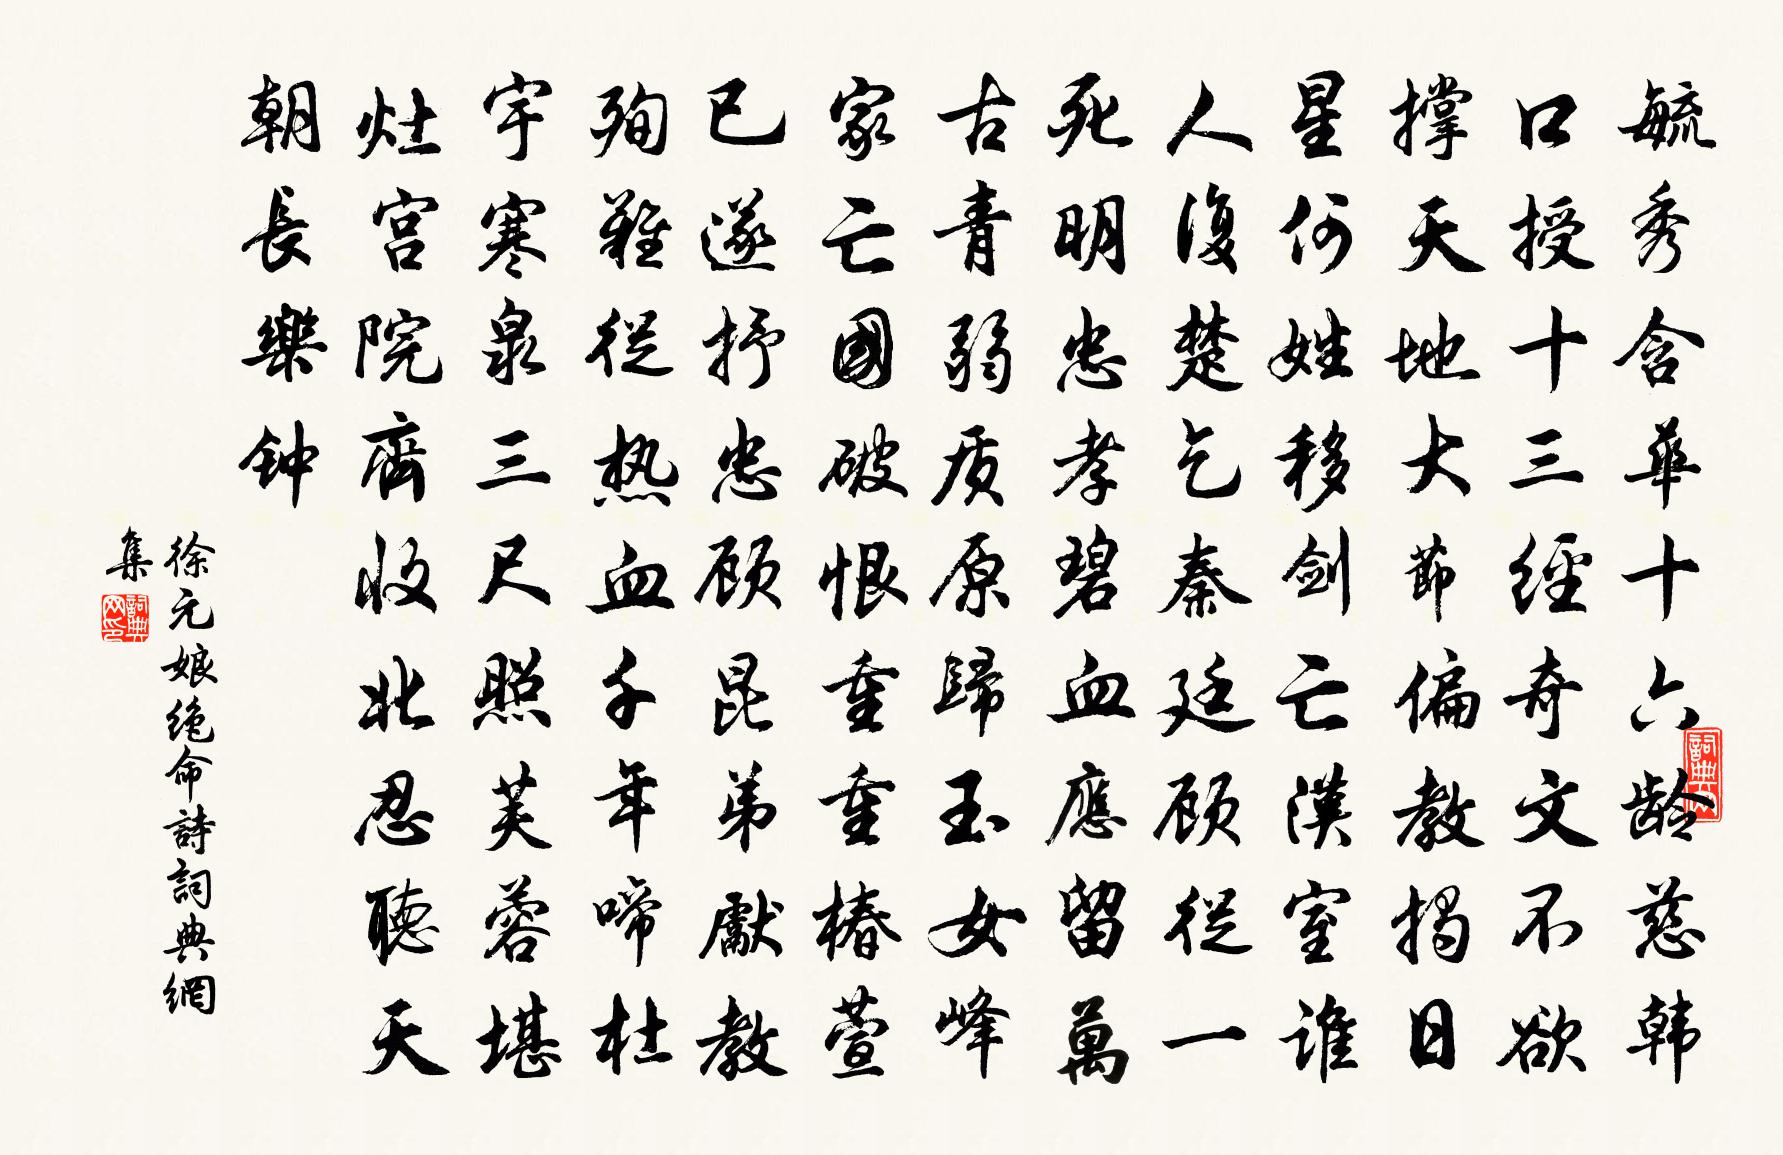 毓秀含華十六龄慈韩
口授十三經奇文不欲
撑天地大節偏教揭日
星何姓移剑亡漢室谁
人復楚乞秦廷顾從一
死明忠孝碧血應留萬
古青弱质原歸玉女峰
家亡國破恨重重椿萱
已遂抒忠顾昆弟獻教
殉難從热血千年啼杜
宇寒泉三尺照芙蓉堪
灶宫院齊收北忍聽天
朝長樂钟
徐元娘绝命詩詞典網
集
詞典网印
詞典网